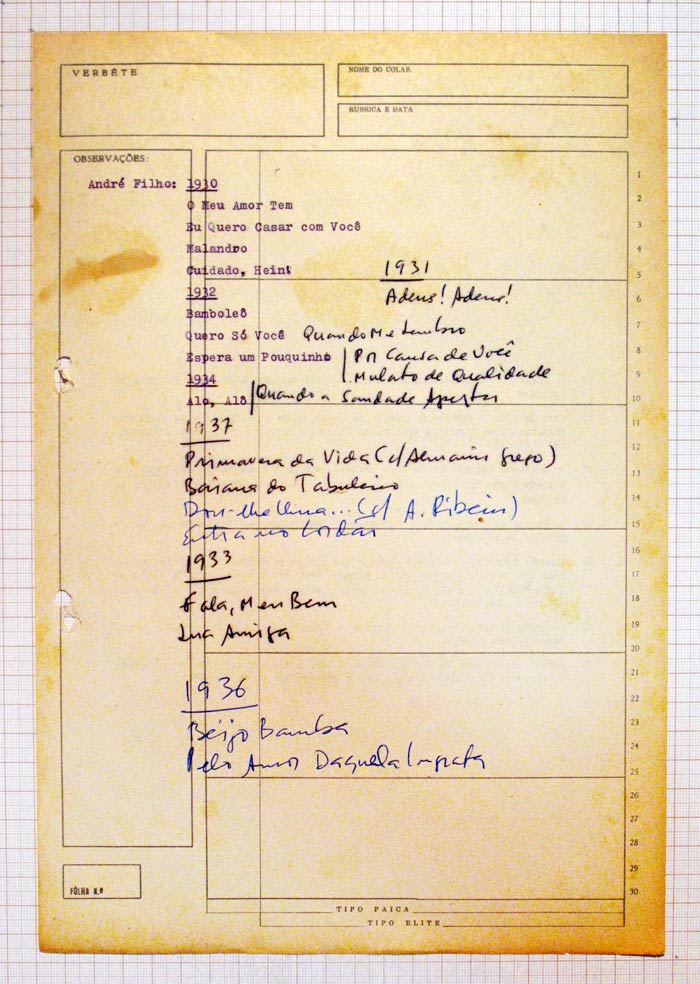 VERBÊTE
NOME DO COLAB.
RUBRICA E DATA
OBSERVAÇÕES:
André Filho: 1930
O Meu Amor Tem
Eu Quero Casar com Você
Malandro
Cuidado, Hein!
1931
Adeus! Adeus!
1932
Bamboleô
Quero Só Você Quando Me Lembro
Espera um Pouquinho Por Causa de Você
Mulato de Qualidade
1934
Alo, Alô Quando a Saudade Apertar
1937
Primavera da Vida (c/ Almanir Grego)
Baiana do Tabuleiro
Dou-lhe Uma... (c/ A. Ribeiro)
Entra no Cordão
1933
Fala, Meu Bem
Lua Amiga
1936
Beijo Bamba
Pelo Amor Daquela Ingrata
1
2
3
4
5
6
7
8
9
10
11
12
13
14
15
16
17
18
19
20
21
22
23
24
25
26
27
28
29
30
FÔLHA N.º
TIPO PAICA
TIPO ELITE